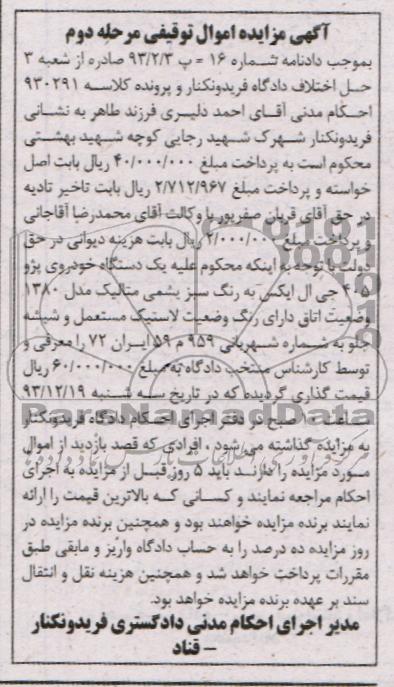 آگهی مزایده اموال توقیفی مرحله دوم
بموجب دادنامه شماره ۱۶ = پ ۹۳/۲/۳ صادره از شعبه ۳
حل اختلاف دادگاه فریدونکنار و پرونده کلاسه ۹۳۰۲۹۱
احکام مدنی آقای احمد دلیری فرزند طاهر به نشانی
فریدونکنار شهرک شهید رجایی کوچه شهید بهشتی
محکوم است به پرداخت مبلغ ۴۰/۰۰۰/۰۰۰ ریال بابت اصل
خواسته و پرداخت مبلغ ۲/۷۱۲/۹۶۷ ریال بابت تاخیر تادیه
در حق آقای قربان صفرپور با وکالت آقای محمدرضا آقاجانی
و پرداخت مبلغ ۲/۰۰۰/۰۰۰ ریال بابت هزینه دیوانی در حق
دولت با توجه به اینکه محکوم علیه یک دستگاه خودروی پژو
۴۰۵ جی ال ایکس به رنگ سبز یشمی متالیک مدل ۱۳۸۰
وضعیت اتاق دارای رنگ وضعیت لاستیک مستعمل و شیشه
جلو به شماره شهربانی ۹۵۹ م ۵۹ ایران ۷۲ را معرفی و
توسط کارشناس منتخب دادگاه به مبلغ ۶۰/۰۰۰/۰۰۰ ریال
قیمت گذاری گردیده که در تاریخ سه شنبه ۹۳/۱۲/۱۹
ساعت ۱۰ صبح در دفتر اجرای احکام دادگاه فریدونکنار
به مزایده گذاشته می شود، افرادی که قصد بازدید از اموال
مورد مزایده را دارند باید ۵ روز قبل از مزایده به اجرای
احکام مراجعه نمایند و کسانی که بالاترین قیمت را ارائه
نمایند برنده مزایده خواهند بود و همچنین برنده مزایده در
روز مزایده ده درصد را به حساب دادگاه واریز و مابقی طبق
مقررات پرداخت خواهد شد و همچنین هزینه نقل و انتقال
سند بر عهده برنده مزایده خواهد بود.
مدیر اجرای احکام مدنی دادگستری فریدونکنار
– قناد
ParsNamadData